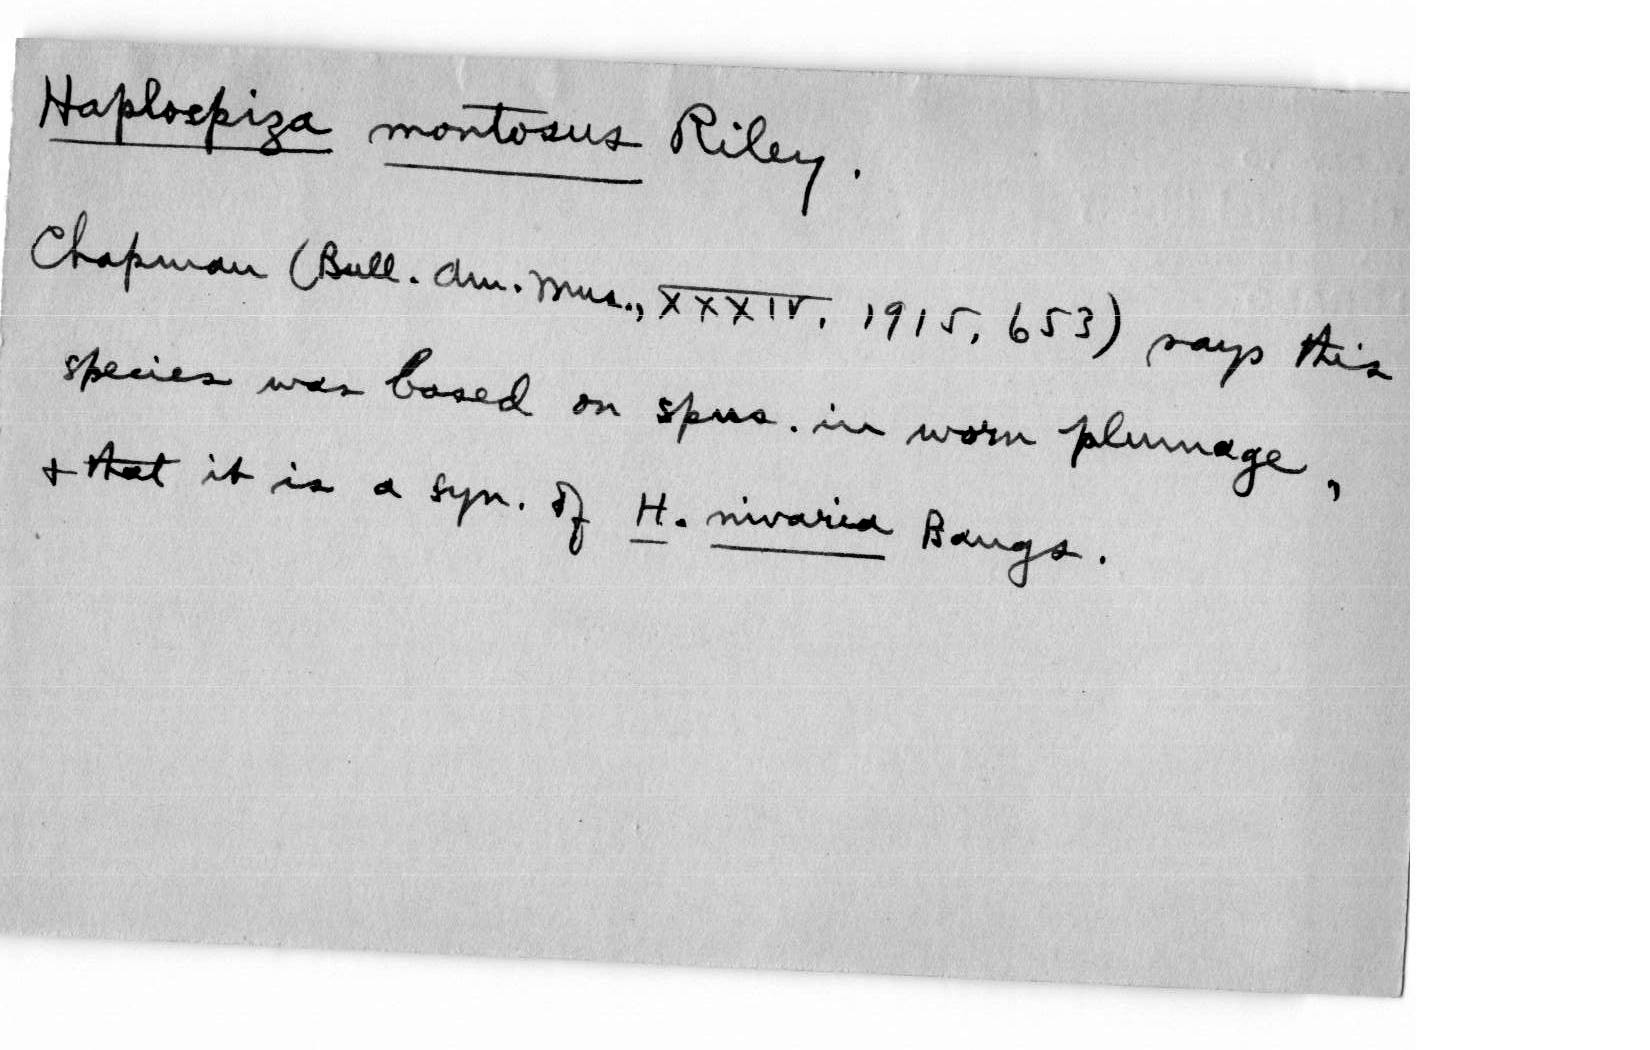 Haplospiza montosus Riley.
Chapman (Bull. Am. Mus., XXXIV, 1915, 653) says this
species was based on spns. in worn plumage,
+ that it is a syn. of H. nivaria Bangs.